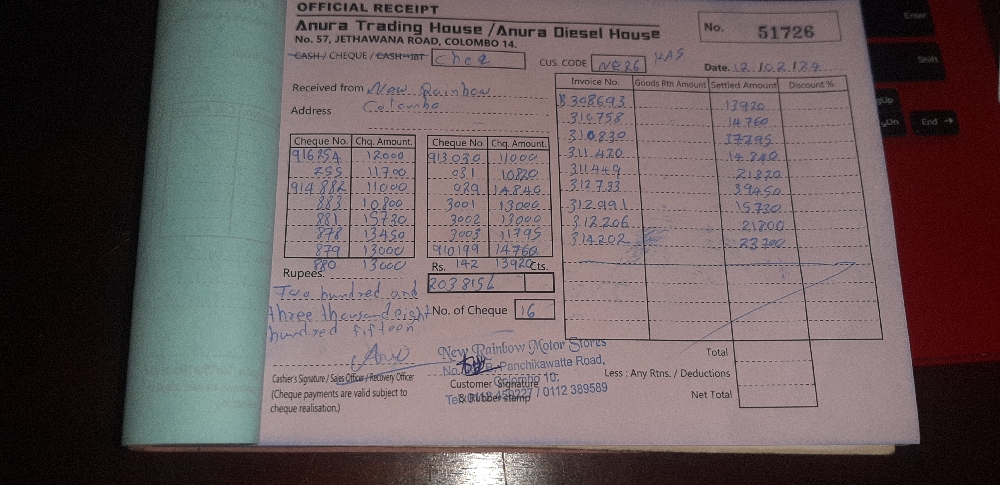 OFFICIAL RECEIPT
Anura Trading House / Anura Diesel House
No. 57, JETHAWANA ROAD, COLOMBO 14.
No. 51726
CASH / CHEQUE / CASH-IBT Cheq
CUS. CODE NE26 KAS
Date. 12.02.24
Received from New Rainbow
Address Colombo
Cheque No. Chq. Amount. Cheque No. Chq. Amount.
916254 12000 913030 11000
255 11700 031 10820
914882 11000 029 14840
883 10800 3001 13000
881 15730 3002 13000
878 13450 3003 11795
879 13000 910199 14760
880 13000 142 13920
Rupees. Rs. Cts.
Two hundred and
three thousand eight
hundred fifteen
203815/-
No. of Cheque 16
Invoice No. Goods Rtn Amount Settled Amount Discount %
B 308693 13920
310758 14760
310830 37295
311420 14840
311449 21820
312733 39450
312991 15730
312206 21800
314202 23700
Total
Less : Any Rtns. / Deductions
Net Total
Casher's Signature / Sales Officer / Recovery Officer
(Cheque payments are valid subject to
cheque realisation.)
New Rainbow Motor Stores
Panchikawatte Road,
Colombo 10.
/ 0112 389589
Customer Signature
& Rubber stamp
Enter
Shift
End →